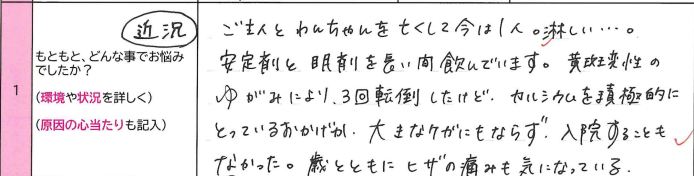 近況
1
もともと、どんな事でお悩み
でしたか？
(環境や状況を詳しく)
(原因の心当たりも記入)
ご主人とわんちゃんを亡くして今は1人。淋しい…。
安定剤と眠剤を長い間飲んでいます。黄斑変性の
ゆがみにより、3回転倒したけど、カルシウムを積極的に
とっているおかげか、大きなケガにもならず、入院することも
なかった。歳とともにヒザの痛みも気になっている。